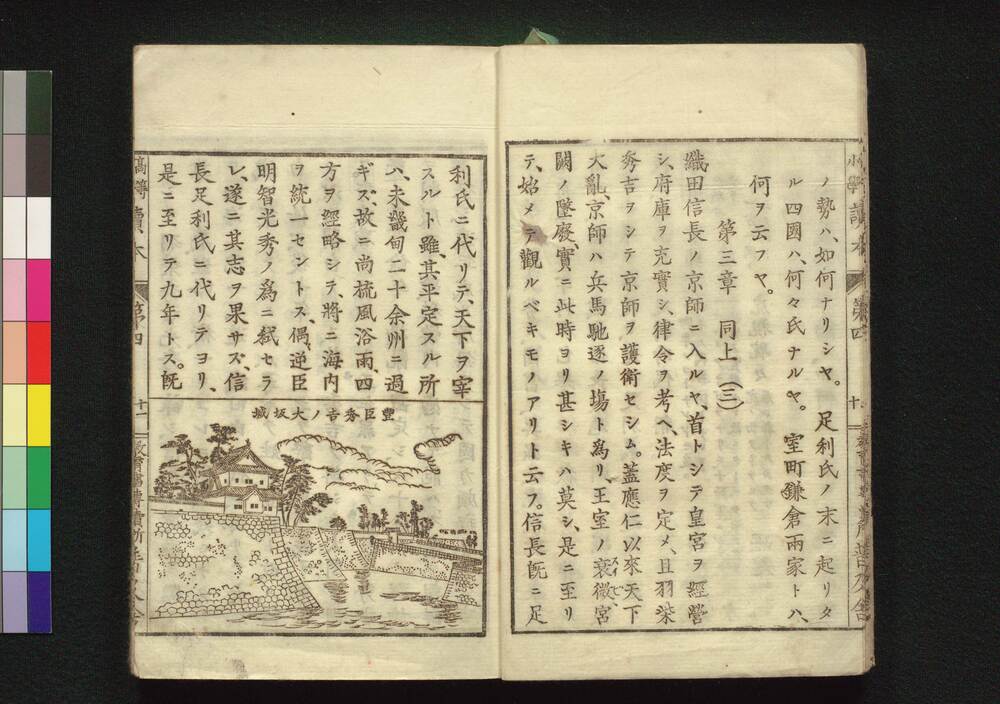 ノ勢ハ、如何ナリシヤ。 足利氏ノ末ニ起リタ
ル四國ハ、何々氏ナルヤ。 室町鎌倉兩家トハ、
何ヲ云フヤ。
第三章 同上 (三)
織田信長ノ京師ニ入ルヤ、首トシテ皇宮ヲ經營
シ、府庫ヲ充實シ、律令ヲ考ヘ、法度ヲ定メ、且羽柴
秀吉ヲシテ京師ヲ護衛セシム。蓋應仁以來天下
大亂、京師ハ兵馬馳逐ノ塲ト爲リ、王室ノ衰微宮
闕ノ墜廢、實ニ此時ヨリ甚シキハ莫シ、是ニ至リ
テ、始メテ觀ルベキモノアリト云フ。信長旣ニ足
小學讀本
第四
十
利氏ニ代リテ、天下ヲ宰
スルト雖、其平定スル所
ハ、未幾甸二十余州ニ過
ギズ、故ニ尚梳風浴雨、四
方ヲ經略シテ、將ニ海内
ヲ統一セントス、偶、逆臣
明智光秀ノ爲ニ弑セラ
レ、遂ニ其志ヲ果サズ、信
長足利氏ニ代リテヨリ、
是ニ至リテ九年トス。旣
豐臣秀吉ノ大坂城
高等讀本
第四
十一